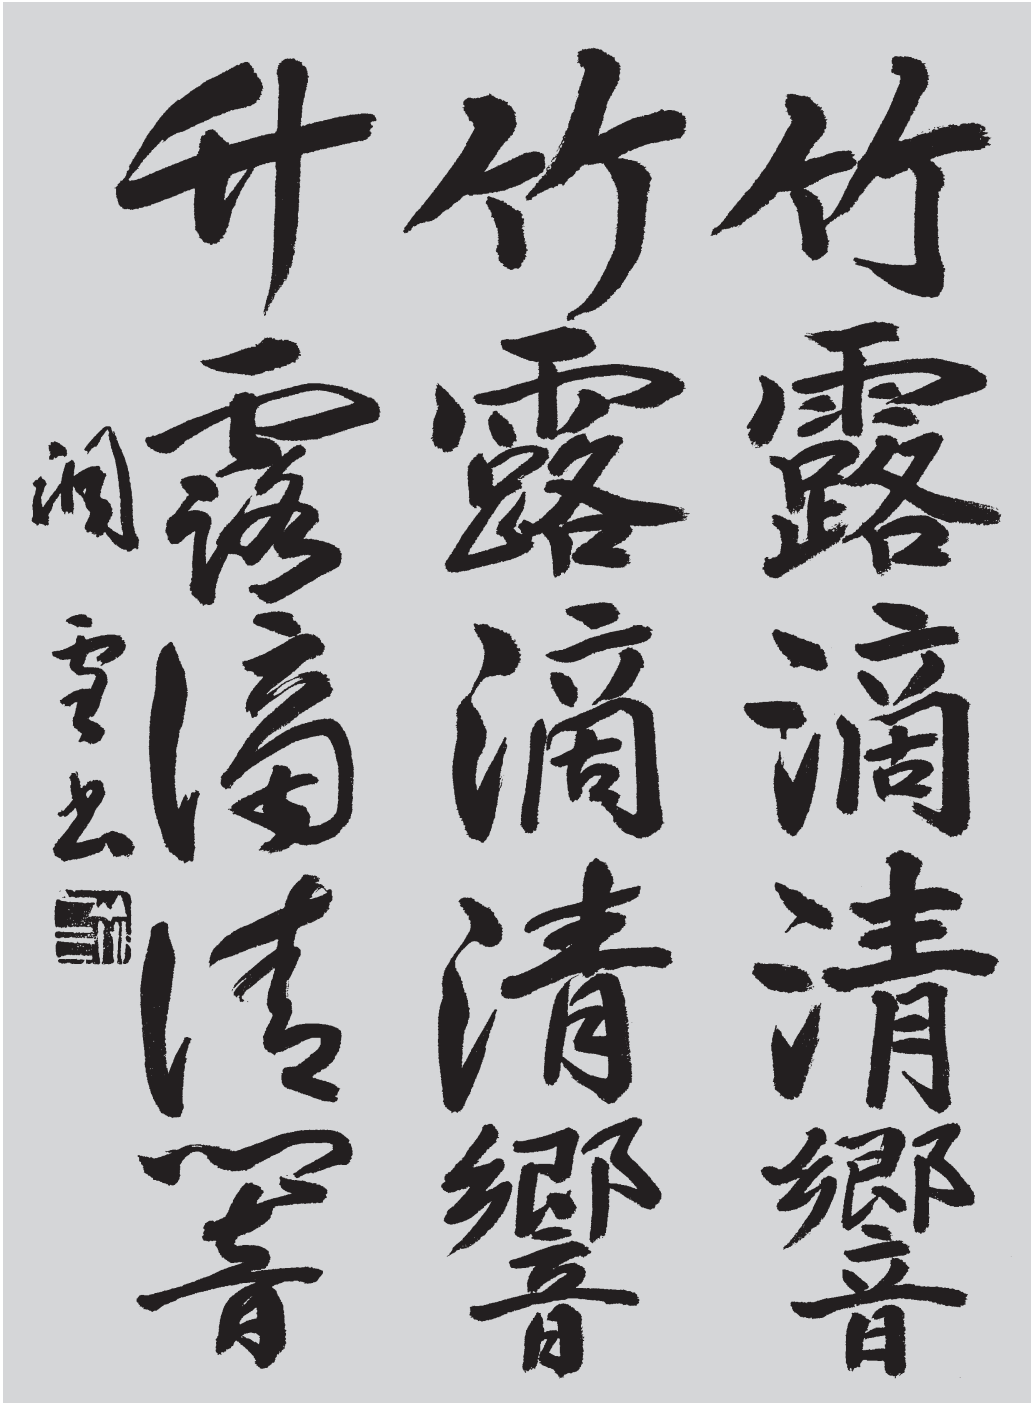 竹露滴清響
竹露滴清響
竹露滴清響
澗雪書